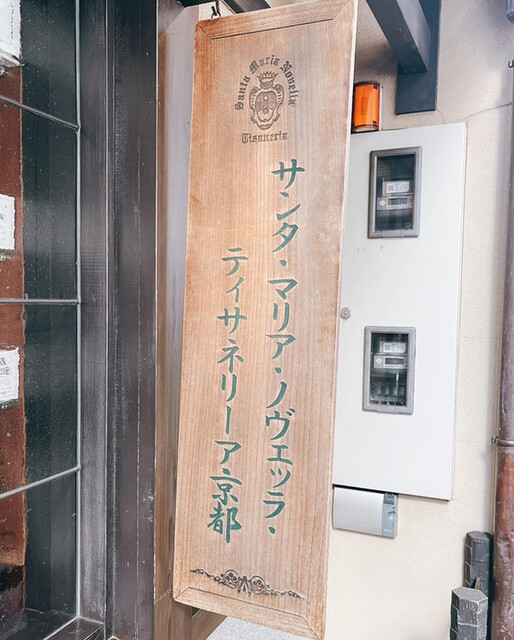 Santa Maria Novella
Tisaneria
サンタ・マリア・ノヴェッラ・
ティサネリーア京都